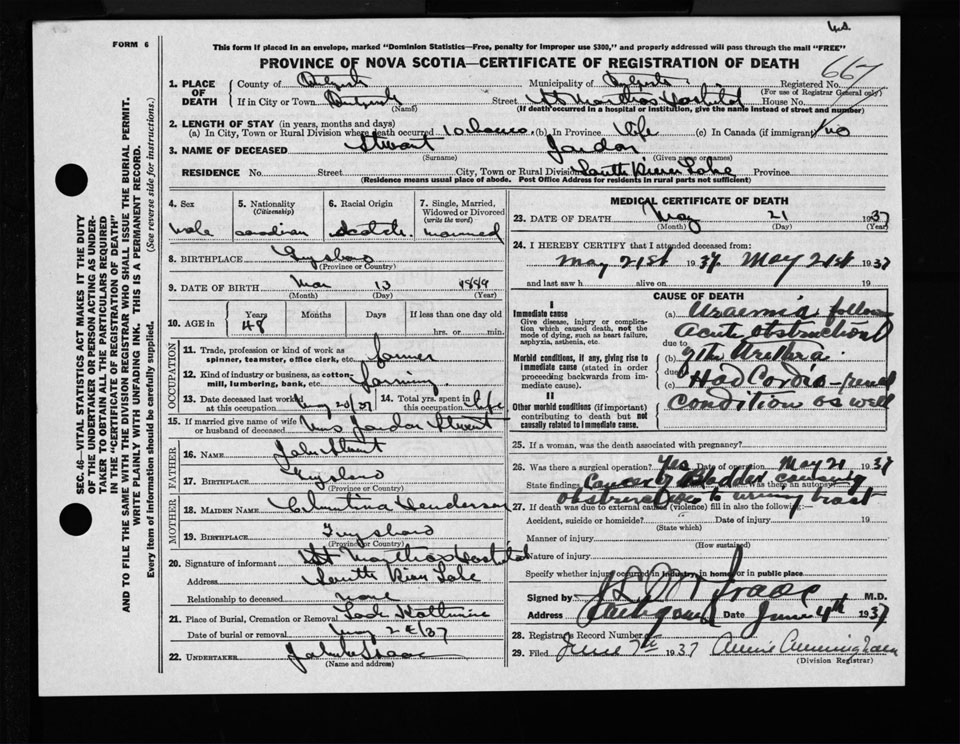 FORM 6
This form if placed in an envelope, marked "Dominion Statistics—Free, penalty for improper use $300," and properly addressed will pass through the mail "FREE"
PROVINCE OF NOVA SCOTIA—CERTIFICATE OF REGISTRATION OF DEATH
667
SEC. 46—VITAL STATISTICS ACT MAKES IT THE DUTY
OF THE UNDERTAKER OR PERSON ACTING AS UNDER-
TAKER TO OBTAIN ALL THE PARTICULARS REQUIRED
IN THE "CERTIFICATE OF REGISTRATION OF DEATH"
AND TO FILE THE SAME WITH THE DIVISION REGISTRAR WHO SHALL ISSUE THE BURIAL PERMIT.
WRITE PLAINLY WITH UNFADING INK. THIS IS A PERMANENT RECORD.
Every item of information should be carefully supplied. (See reverse side for instructions.)
1. PLACE OF DEATH
County of Municipality of Registered No.
(For use of Registrar General only)
If in City or Town Street St Marthas Hospital House No.
(Name) (If death occurred in a hospital or institution, give the name instead of street and number)
2. LENGTH OF STAY (in years, months and days)
(a) In City, Town or Rural Division where death occurred 10 hours (b) In Province life (c) In Canada (if immigrant) no
3. NAME OF DECEASED Stewart Jordan
(Surname) (Given name or names)
RESIDENCE No. Street City, Town or Rural Division South River Lake Province
(Residence means usual place of abode. Post Office Address for residents in rural parts not sufficient)
4. Sex
male
5. Nationality
(Citizenship)
canadian
6. Racial Origin
Scotch
7. Single, Married, Widowed or Divorced
(write the word)
married
8. BIRTHPLACE Guysboro
(Province or Country)
9. DATE OF BIRTH Mar 13 1889
(Month) (Day) (Year)
10. AGE in
Years Months Days If less than one day old
48 hrs. or min.
OCCUPATION
11. Trade, profession or kind of work as
spinner, teamster, office clerk, etc. farmer
12. Kind of industry or business, as cotton-
mill, lumbering, bank, etc. farming
13. Date deceased last worked at this occupation May 20/37
14. Total yrs. spent in this occupation life
15. If married give name of wife or husband of deceased Mrs Jordan Stewart
FATHER
16. NAME John Stewart
17. BIRTHPLACE Guysboro
(Province or Country)
MOTHER
18. MAIDEN NAME Clementina Henderson
19. BIRTHPLACE Guysboro
(Province or Country)
20. Signature of informant St Marthas Hospital
Address South River Lake
Relationship to deceased none
21. Place of Burial, Cremation or Removal Loch Katherine
Date of burial or removal May 24/37
22. UNDERTAKER
(Name and address)
MEDICAL CERTIFICATE OF DEATH
23. DATE OF DEATH May 21 1937
(Month) (Day) (Year)
24. I HEREBY CERTIFY that I attended deceased from:
May 21st 1937 May 21st 1937
and last saw h alive on 19
CAUSE OF DEATH
I
Immediate cause
Give disease, injury or complication which caused death, not the mode of dying, such as heart failure, asphyxia, asthenia, etc.
Morbid conditions, if any, giving rise to immediate cause (stated in order proceeding backwards from immediate cause).
II
Other morbid conditions (if important) contributing to death but not causally related to immediate cause.
(a) Uraemia following
Acute obstruction
due to
(b) of the Urethra.
due to
(c) Had Cardio-renal
condition as well
25. If a woman, was the death associated with pregnancy?
26. Was there a surgical operation? Yes Date of operation May 21 1937
State findings Cancer of Bladder causing Was there an autopsy?
obstruction to urinary tract
27. If death was due to external causes (violence) fill in also the following:—
Accident, suicide or homicide? Date of injury 19
(State which)
Manner of injury
(How sustained)
Nature of injury
Specify whether injury occurred in industry, in home, or in public place
Signed by M.D.
Address Antigonish Date June 4th 1937
28. Registrar's Record Number
29. Filed June 7th 1937 Annie Cunningham
(Division Registrar)